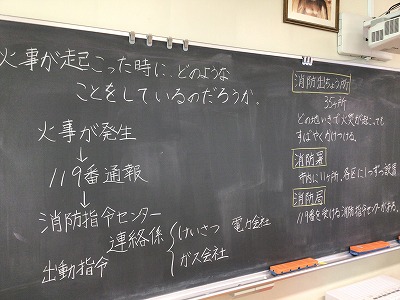 火事が起こった時に、どのような
ことをしているのだろうか。
火事が発生
↓
119番通報
↓
消防指令センター
連絡係
けいさつ 電力会社
ガス会社
出動指令
消防出ちょう所
35ヶ所
どの地いきで火災が起こっても
すばやくかけつける。
消防署
市内に11ヶ所、各区に1つずつ設置
消防局
119番を受ける消防指令センターがある。